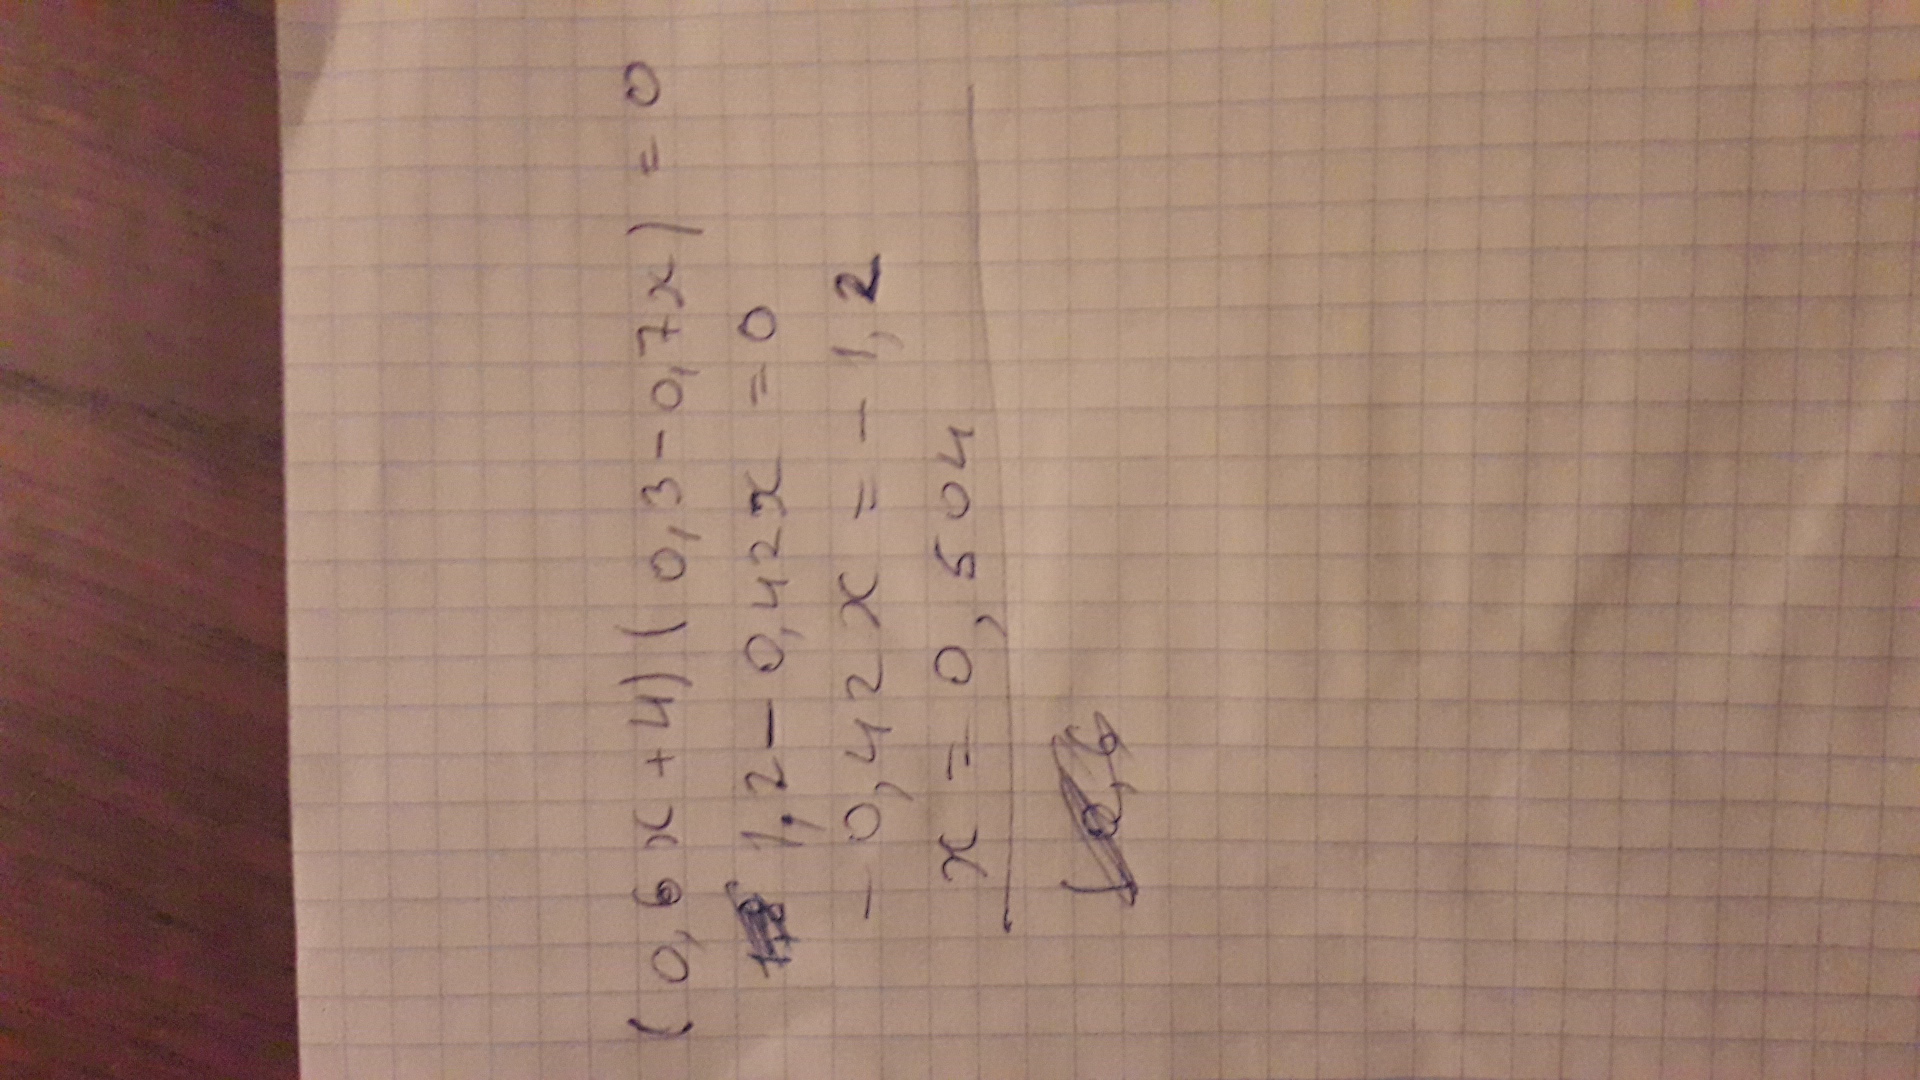 (0,6x+4)(0,3-0,7x)=0
1,2-0,42x=0
-0,42x=-1,2
x=0,504